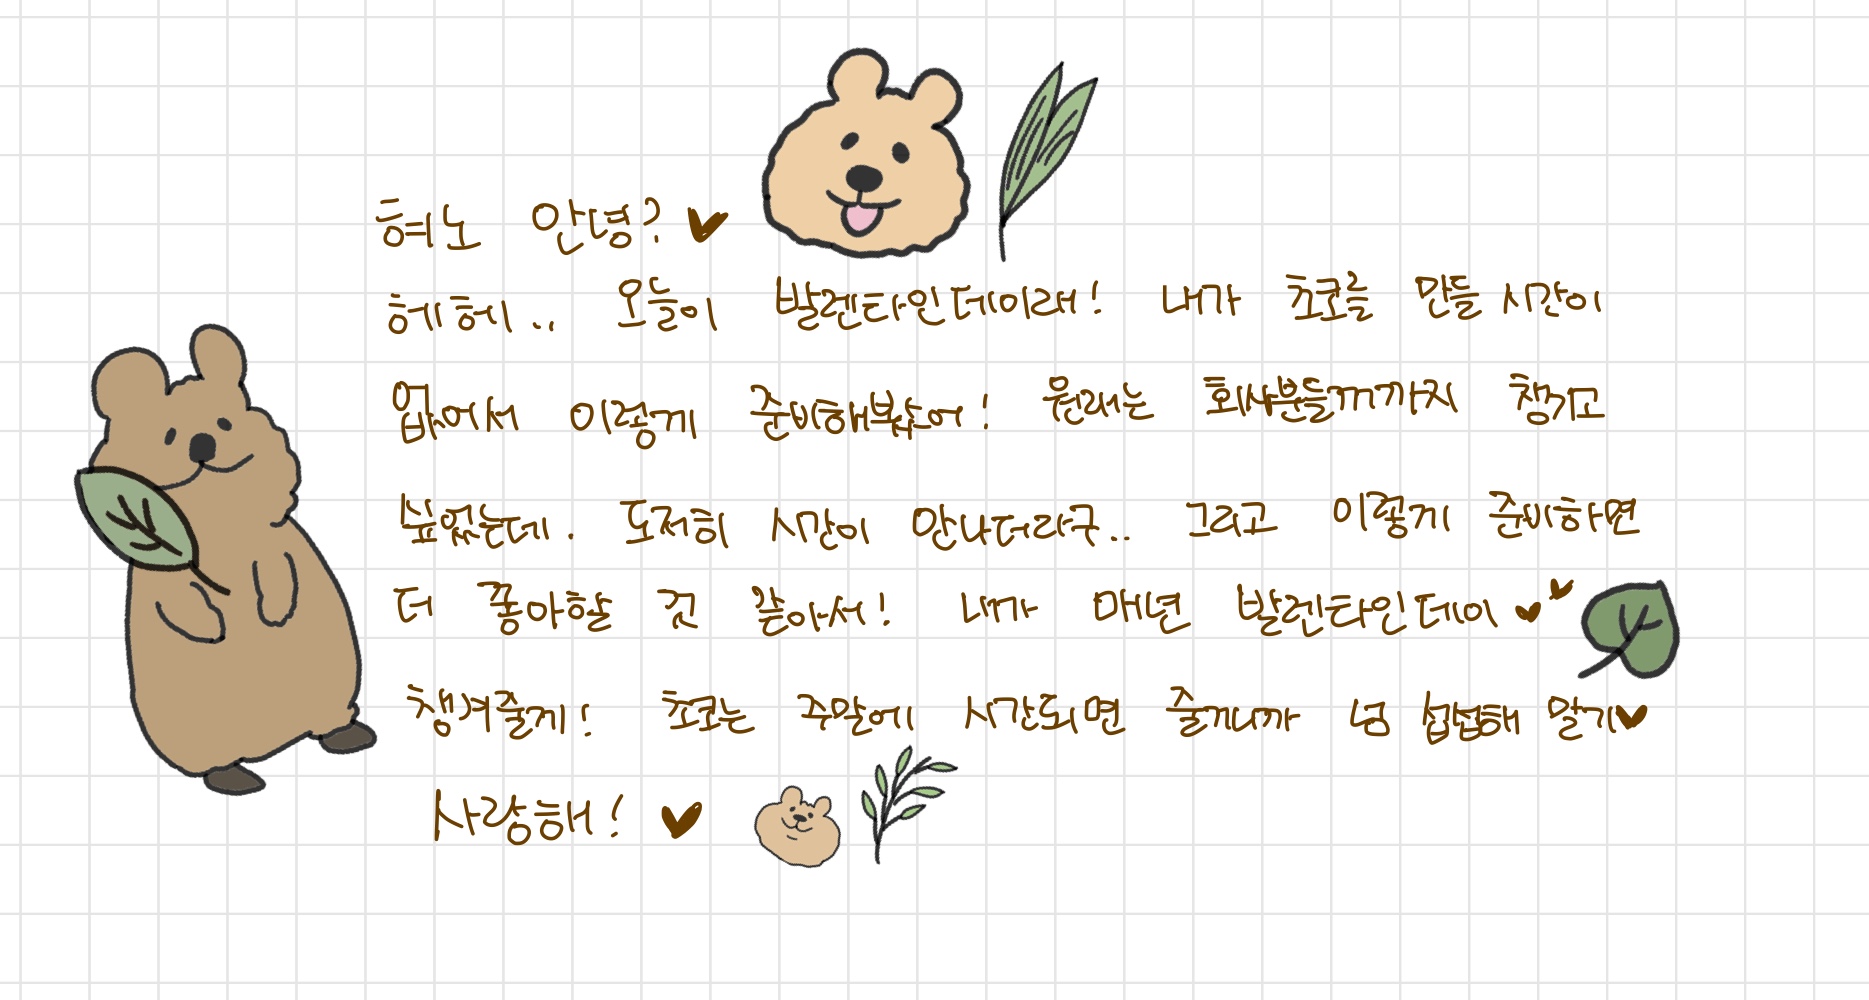 혀노 안녕?
헤헤.. 오늘이 발렌타인데이래! 내가 초코를 만들 시간이
없어서 이렇게 준비해봤어! 원래는 회사분들꺼까지 챙기고
싶었는데. 도저히 시간이 안나더라구.. 그리고 이렇게 준비하면
더 좋아할 것 같아서! 내가 매년 발렌타인데이
챙겨줄게! 초코는 주말에 시간되면 줄꺼니까 넘 섭섭해 말기
사랑해!